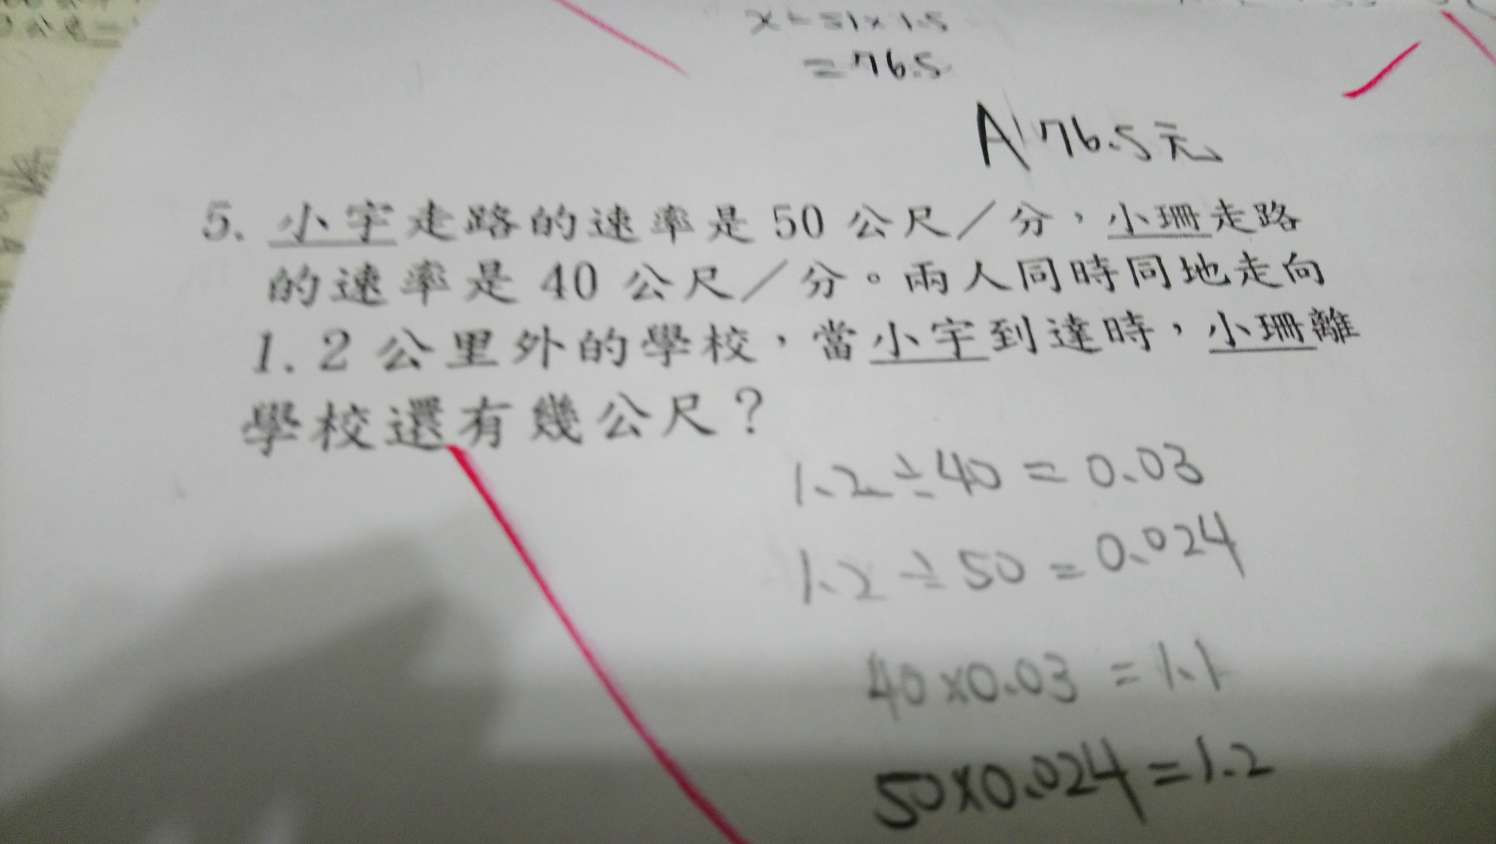 x=51×1.5
=76.5
A 76.5元
5. 小宇走路的速率是 50 公尺／分，小珊走路
的速率是 40 公尺／分。兩人同時同地走向
1.2 公里外的學校，當小宇到達時，小珊離
學校還有幾公尺？
1.2÷40=0.03
1.2÷50=0.024
40×0.03=1.1
50×0.024=1.2